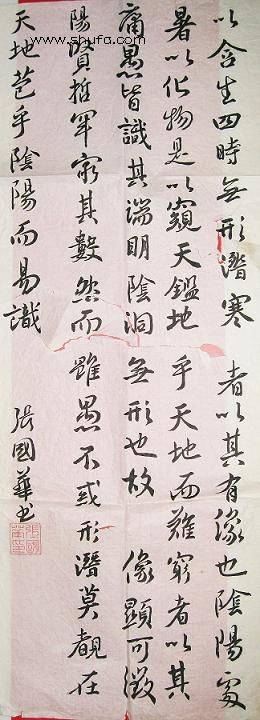 www.shufa.com
以含生四時無形潛寒 者以其有像也陰陽處
暑以化物是以窺天鑑地 乎天地而難窮者以其
庸愚皆識其端明陰洞 無形也故 像顯可徵
陽賢哲罕窮其數然而 雖愚不或形潛莫覩在
天地苞乎陰陽而易識
張國華书